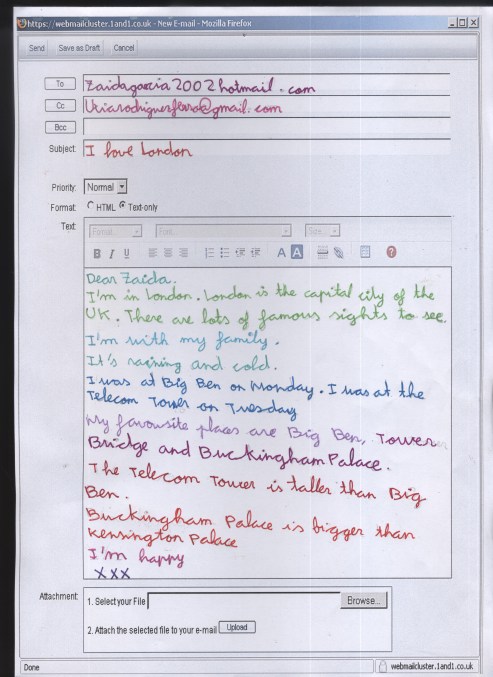 https://webmailcluster.1and1.co.uk - New E-mail - Mozilla Firefox
Send Save as Draft Cancel
To Zaidagarcia2002hotmail.com
Cc
Bcc
Subject: I love London
Priority: Normal
Format: HTML Text-only
Text: Format... Font... Size...
B I U A A ?
Dear Zaida,
I'm in London. London is the capital city of the
UK. There are lots of famous sights to see.
I'm with my family.
It's raining and cold.
I was at Big Ben on Monday. I was at the
Telecom Tower on Tuesday
My favourite places are Big Ben, Tower
Bridge and Buckingham Palace.
The Telecom Tower is taller than Big
Ben.
Buckingham Palace is bigger than
Kensington Palace
I'm happy
XXX
Attachment: 1. Select your File Browse...
2. Attach the selected file to your e-mail Upload
Done webmailcluster.1and1.co.uk